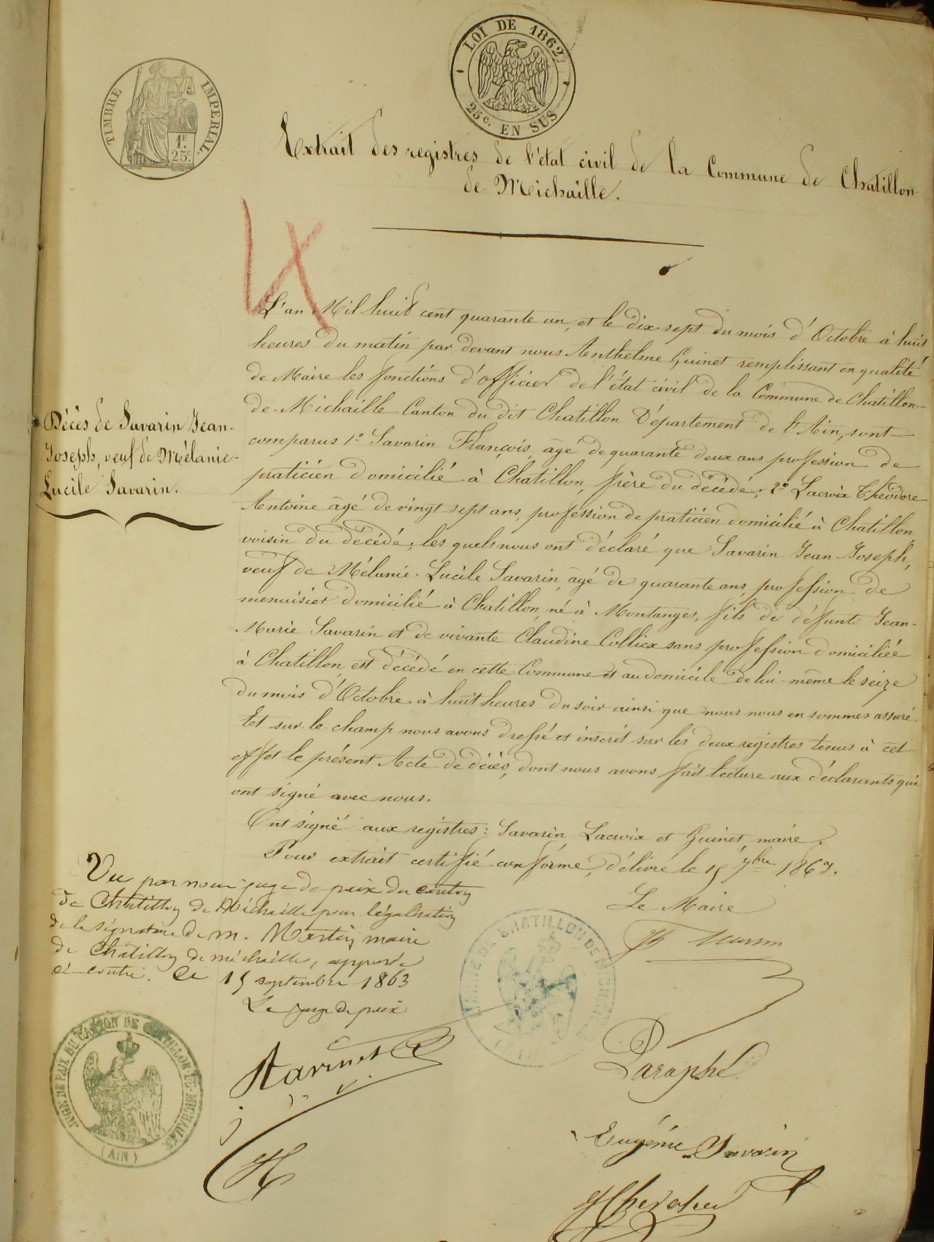 LOI DE 1862
25c. EN SUS
TIMBRE IMPERIAL
1F. 25c.
Extrait des registres de l'état civil de la Commune de Chatillon
de Michaille.
L'an Mil huit cent quarante un, et le dix sept du mois d'Octobre à huit
heures du matin par devant nous Anthelme Guinet remplissant en qualité
de Maire les fonctions d'officier de l'état civil de la Commune de Chatillon-
de-Michaille Canton du dit Chatillon Département de l'Ain, sont
comparus 1o Savarin François, âgé de quarante deux ans profession de
praticien domicilié à Chatillon, frère du décédé; 2o Lacroix Théodore
Antoine âgé de vingt sept ans, profession de praticien domicilié à Chatillon
voisin du décédé, les quels nous ont déclaré que Savarin Jean-Joseph,
veuf de Mélanie-Lucile Savarin, âgé de quarante ans, profession de
menuisier domicilié à Chatillon, né à Montanges, fils de défunt Jean-
Marie Savarin et de vivante Claudine Colliex sans profession domiciliée
à Chatillon est décédé en cette Commune et au domicile de lui-même le seize
du mois d'Octobre à huit heures du soir ainsi que nous nous en sommes assuré.
Et sur le champ nous avons dressé et inscrit sur les deux registres tenus à cet
effet le présent Acte de décès, dont nous avons fait lecture aux déclarants qui
ont signé avec nous.
Ont signé aux registres: Savarin, Lacroix et Guinet maire.
Pour extrait certifié conforme, délivré le 15 7bre 1863.
Le Maire
Paraphé
Eugénie Savarin
Décès de Savarin Jean-
Joseph, veuf de Mélanie-
Lucile Savarin.
Vu par nous juge de paix du canton
de Chatillon de Michaille pour légalisation
de la signature de m. Martin maire
de Chatillon de michaille, apposée
ci contre. Le 15 septembre 1863
Le juge de paix
MAIRIE DE CHATILLON DE MICHAILLE
JUGE DE PAIX DU CANTON DE CHATILLON-DE-MICHAILLE
(AIN)